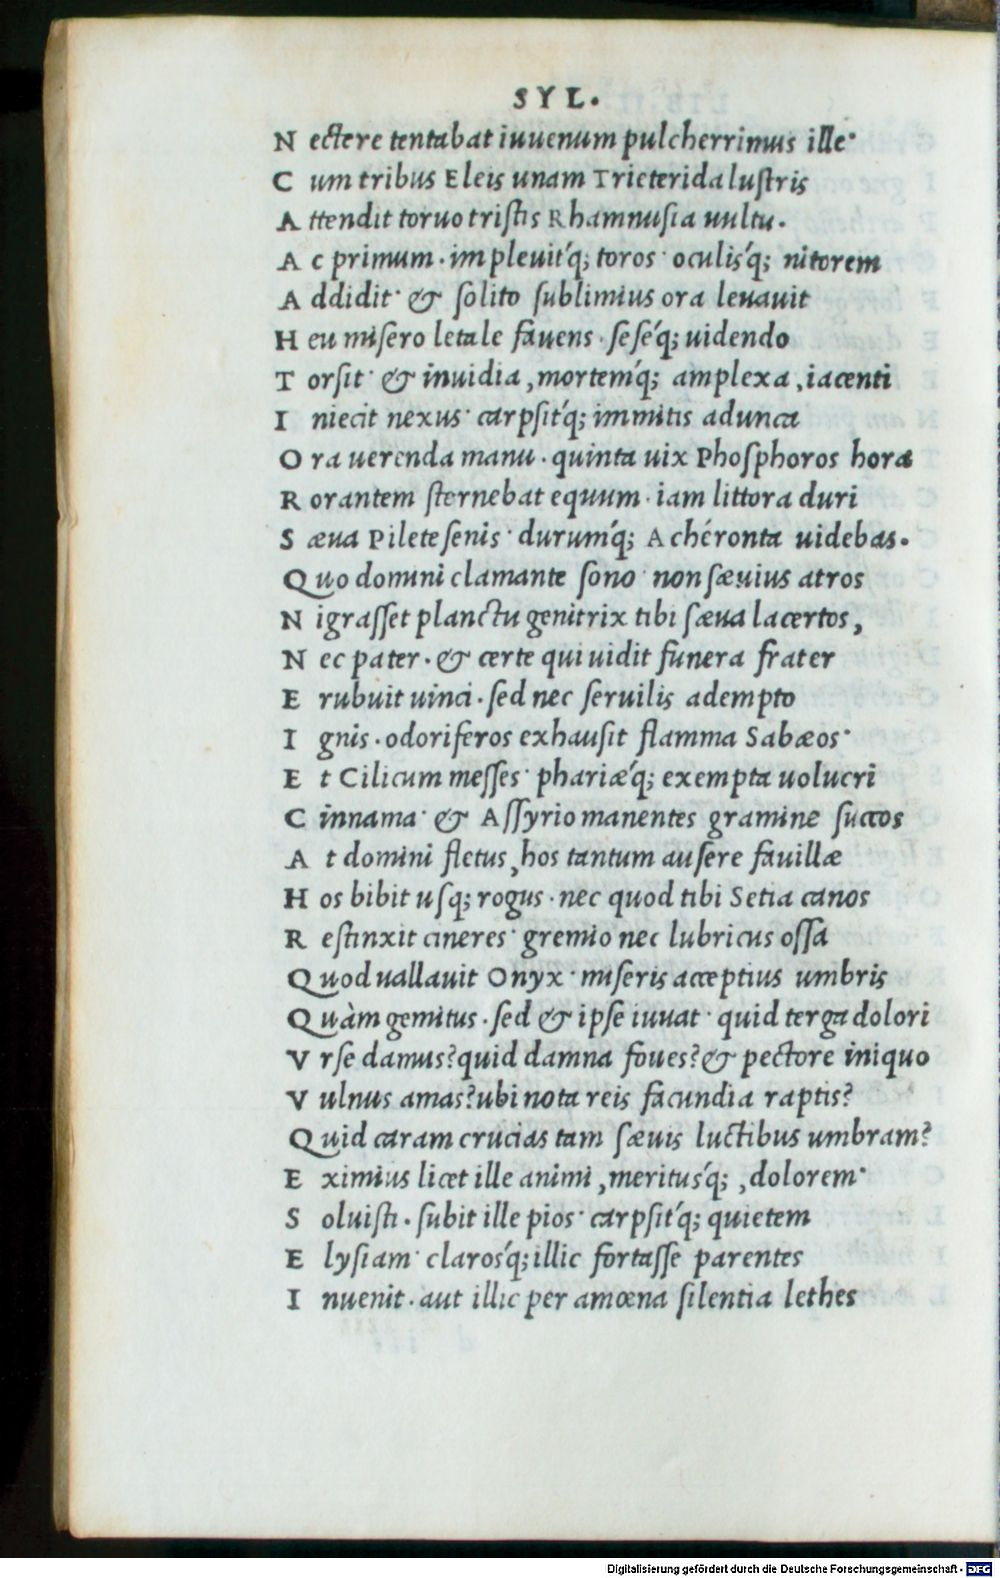 SYL.
N ectere tentabat iuuenum pulcherrimus ille·
C um tribus Eleis unam Trieterida lustris
A ttendit toruo tristis Rhamnusia uultu.
A c primum· impleuit'q; toros· oculis'q; nitorem
A ddidit· & solito sublimius ora leuauit
H eu misero letale fauens· sesé'q; uidendo
T orsit· & inuidia, mortem'q; amplexa, iacenti
I niecit nexus· carpsit'q; immitis adunca
O ra uerenda manu· quinta uix Phosphoros hora
R orantem sternebat equum· iam littora duri
S æua Pilete senis· durum'q; Achéronta uidebas.
Quo domini clamante sono· non sæuius atros
N igrasset planctu genitrix tibi sæua lacertos,
N ec pater· & certe qui uidit funera frater
E rubuit uinci· sed nec seruilis adempto
I gnis· odoriferos exhausit flamma Sabæos·
E t Cilicum messes· phariæ'q; exempta uolucri
C innama· & Assyrio manentes gramine succos
A t domini fletus, hos tantum ausere fauillæ
H os bibit usq; rogus· nec quod tibi Setia canos
R estinxit cineres· gremio nec lubricus ossa
Quod uallauit Onyx· miseris acceptius umbris
Quàm gemitus· sed & ipse iuuat· quid terga dolori
V rse damus? quid damna foues? & pectore iniquo
V ulnus amas? ubi nota reis facundia raptis?
Quid caram crucias tam sæuis luctibus umbram?
E ximius licet ille animi, meritus'q;, dolorem·
S oluisti· subit ille pios· carpsit'q; quietem
E lysiam· claros'q; illic fortasse parentes
I nuenit· aut illic per amœna silentia lethes
Digitalisierung gefördert durch die Deutsche Forschungsgemeinschaft - DFG